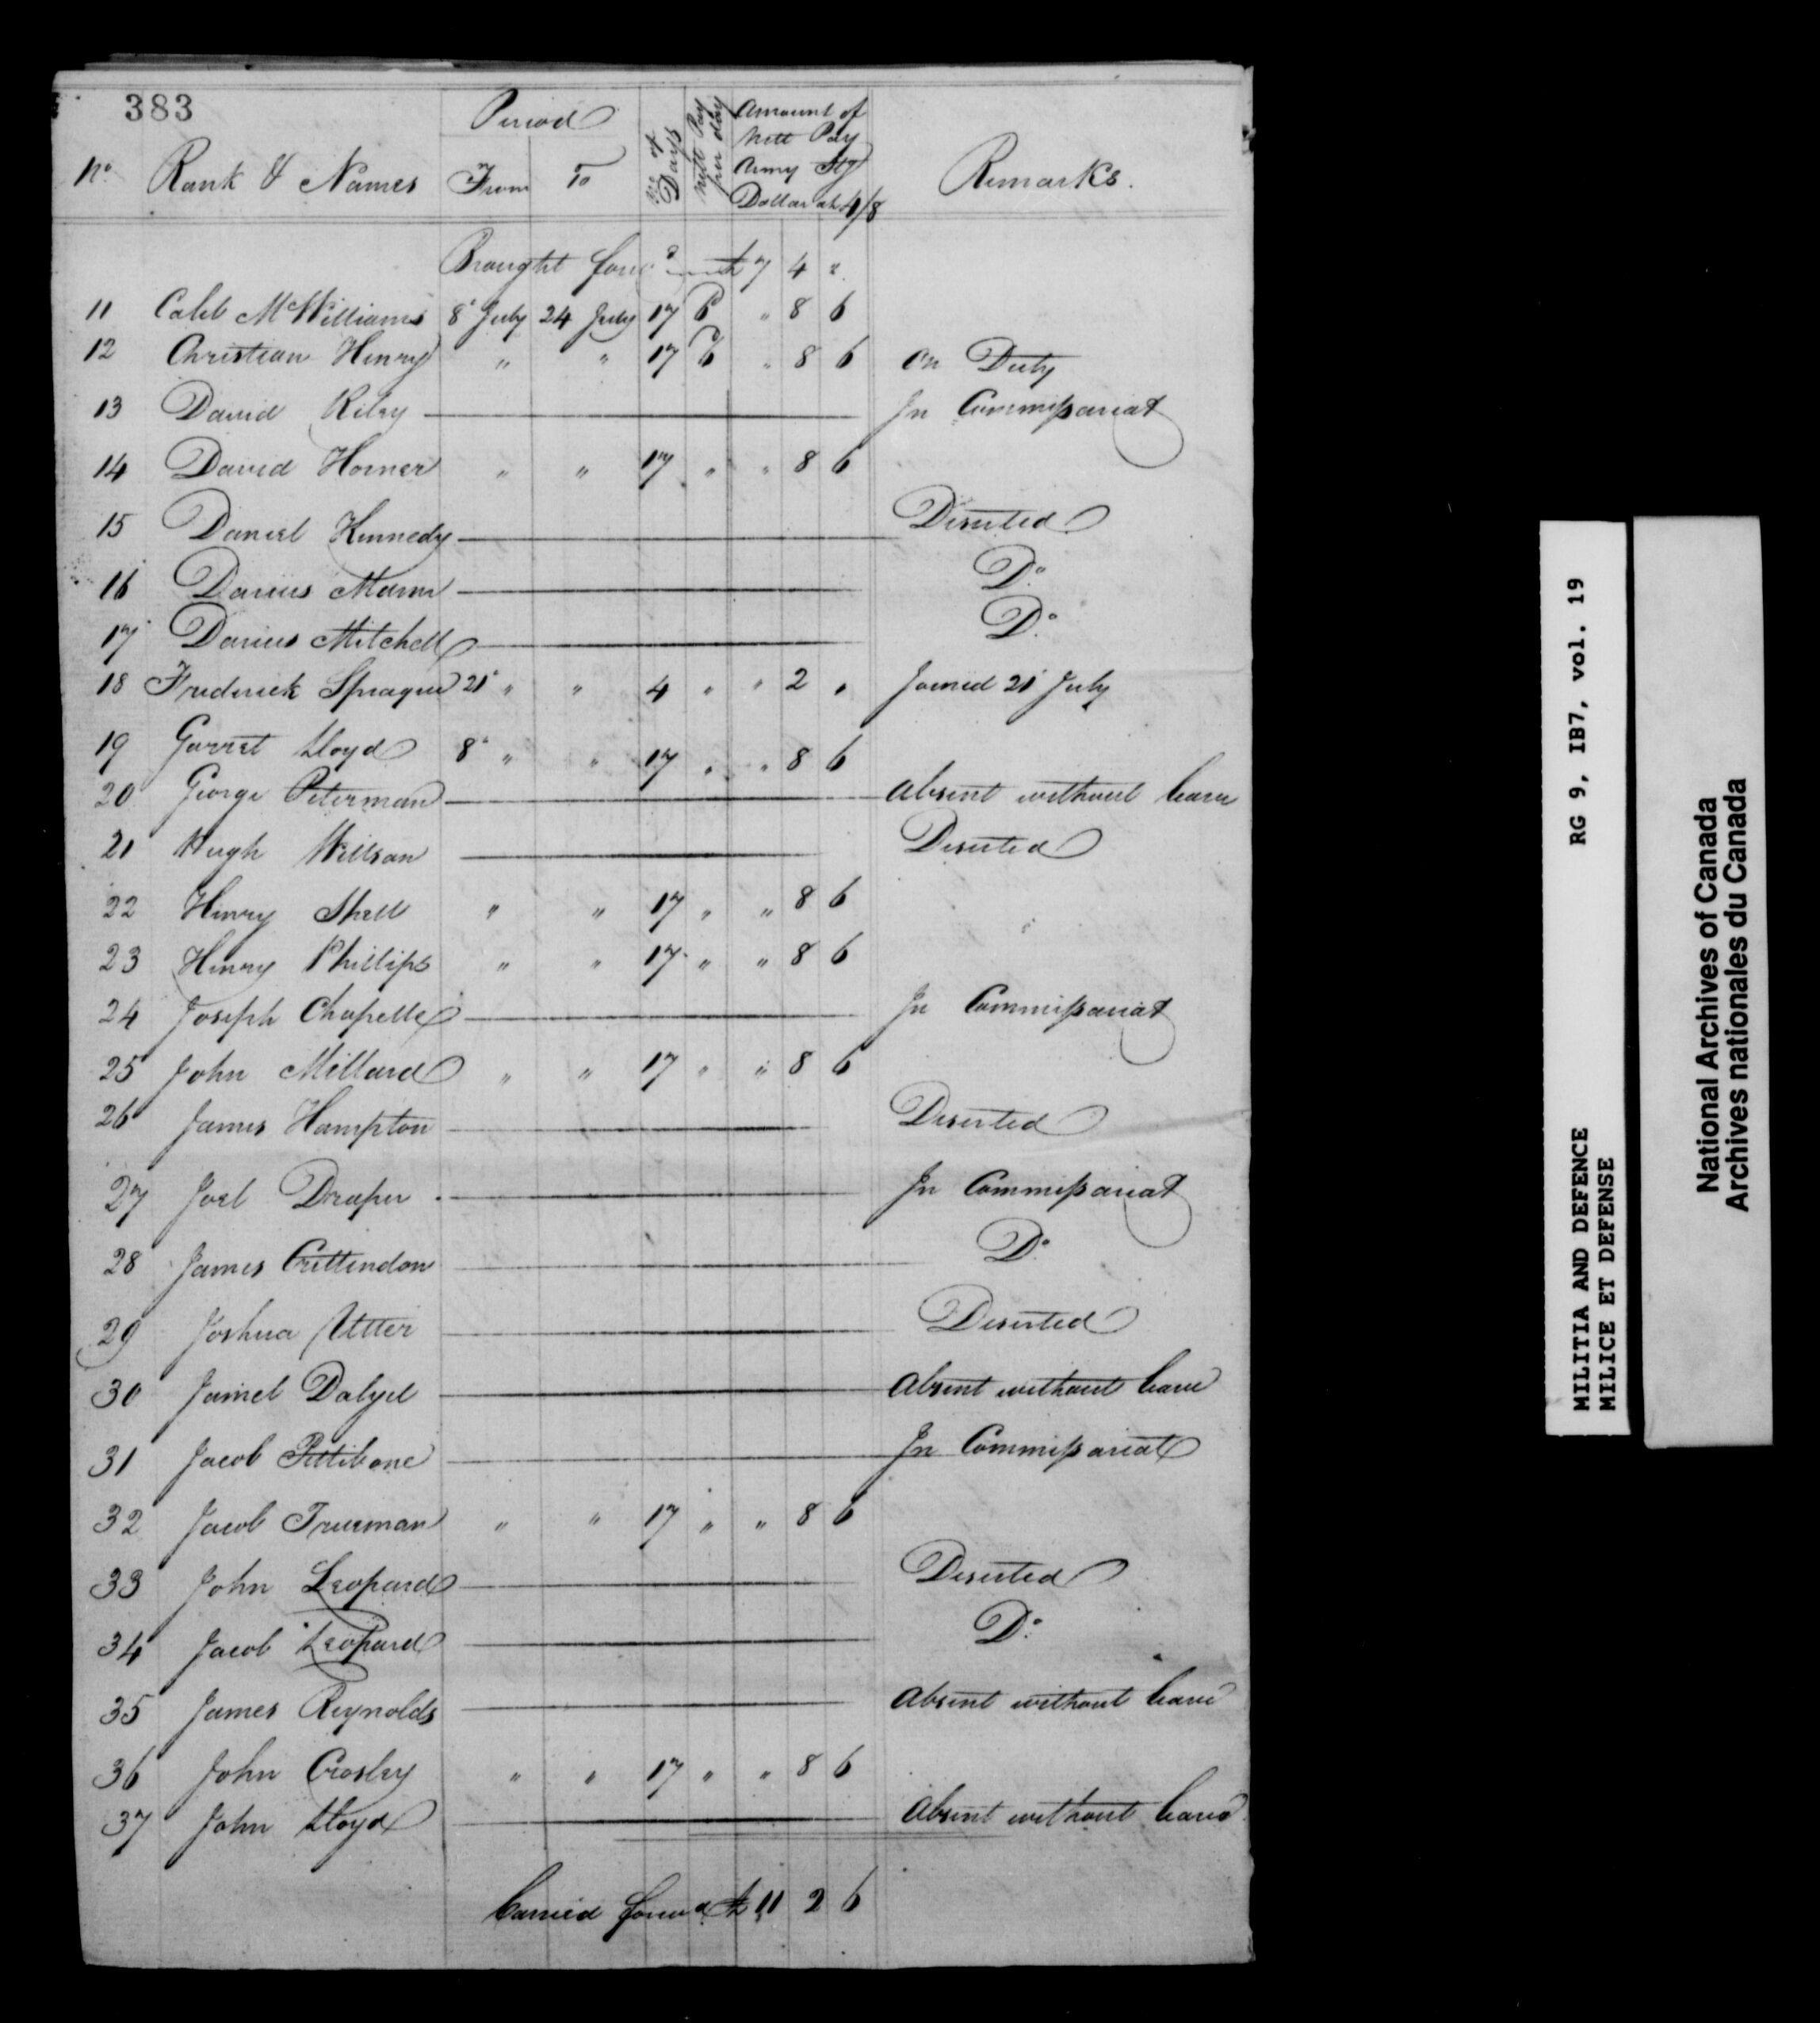 383
Period
No. of Days
Nett Pay per day
Amount of
Nett Pay
Army Stg
Dollar at 4/8
No. Rank & Names From To Remarks.
Brought forwd £ 7 4 "
11 Caleb McWilliams 8 July 24 July 17 6 " 8 6
12 Christian Henry " " 17 6 " 8 6 On Duty
13 David Riley In Commissariat
14 David Horner " " 17 " " 8 6
15 Daniel Kennedy Deserted
16 Darius Mann Do.
17 Darius Mitchell Do.
18 Frederick Sprague 21 " " 4 " " 2 " Joined 21 July
19 Garret Lloyd 8 " " 17 " " 8 6
20 George Peterman Absent without leave
21 Hugh Willson Deserted
22 Henry Shell " " 17 " " 8 6
23 Henry Phillips " " 17 " " 8 6
24 Joseph Chapelle In Commissariat
25 John Millard " " 17 " " 8 6
26 James Hampton Deserted
27 Joel Draper In Commissariat
28 James Crittendon Do.
29 Joshua Utter Deserted
30 Jamel Dalyel Absent without leave
31 Jacob Pettibone In Commissariat
32 Jacob Trueman " " 17 " " 8 6
33 John Leopard Deserted
34 Jacob Leopard Do.
35 James Reynolds Absent without leave
36 John Crosley " " 17 " " 8 6
37 John Lloyd Absent without leave
Carried forwd £ 11 2 6
MILITIA AND DEFENCE RG 9, IB7, vol. 19
MILICE ET DEFENSE
National Archives of Canada
Archives nationales du Canada